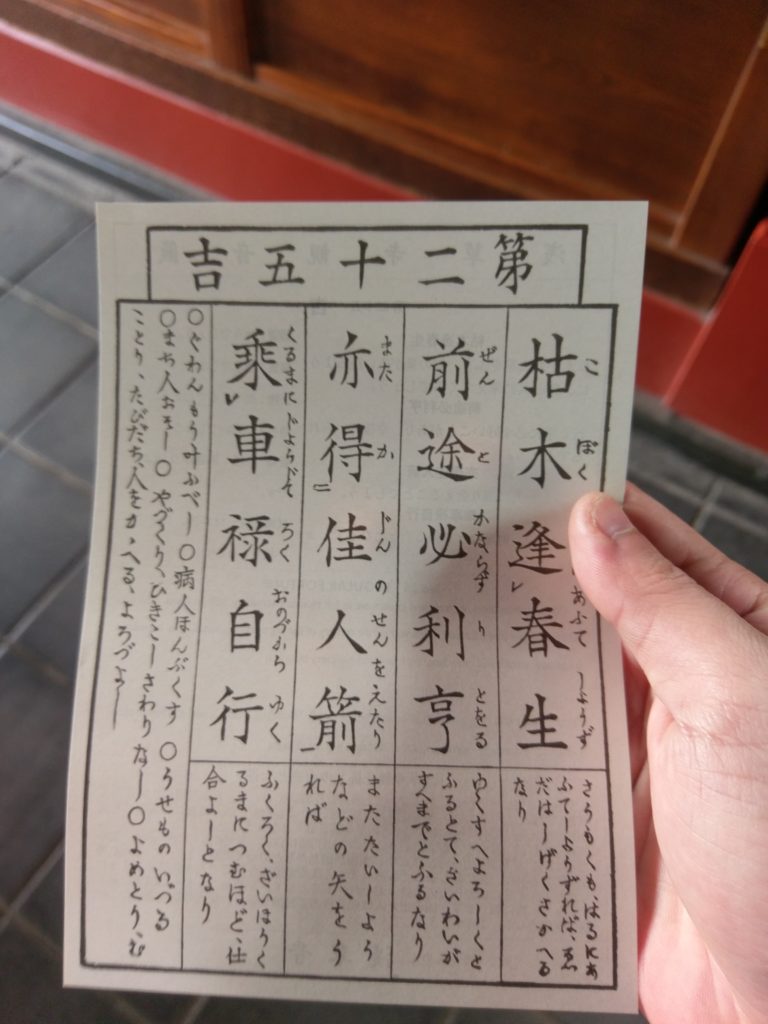 第二十五吉
こ ぼく あふて しようず
枯木逢春生
さうもくも、はるにあ
ふてしようずれば、ゑ
だはしげくさかへる
なり
ぜん と かならず り とをる
前途必利亨
ゆくすへよろしくと
ふるとて、ざいわいが
すへまでとふるなり
また か じん の せんをえたり
亦得佳人箭
またたいしよう
などの矢をう
れば
くるまに じようじて ろく おのづから ゆく
乗車禄自行
ふくろく、ざいほうく
るまにつむほど、仕
合よしとなり
○ぐわんもう叶ふべし○病人ほんぶくす ○うせものいづる
○まち人おそし○やづくり、ひきこしさわりなし○よめとり、む
ことり、たびだち、人をかゝへる、よろづよし